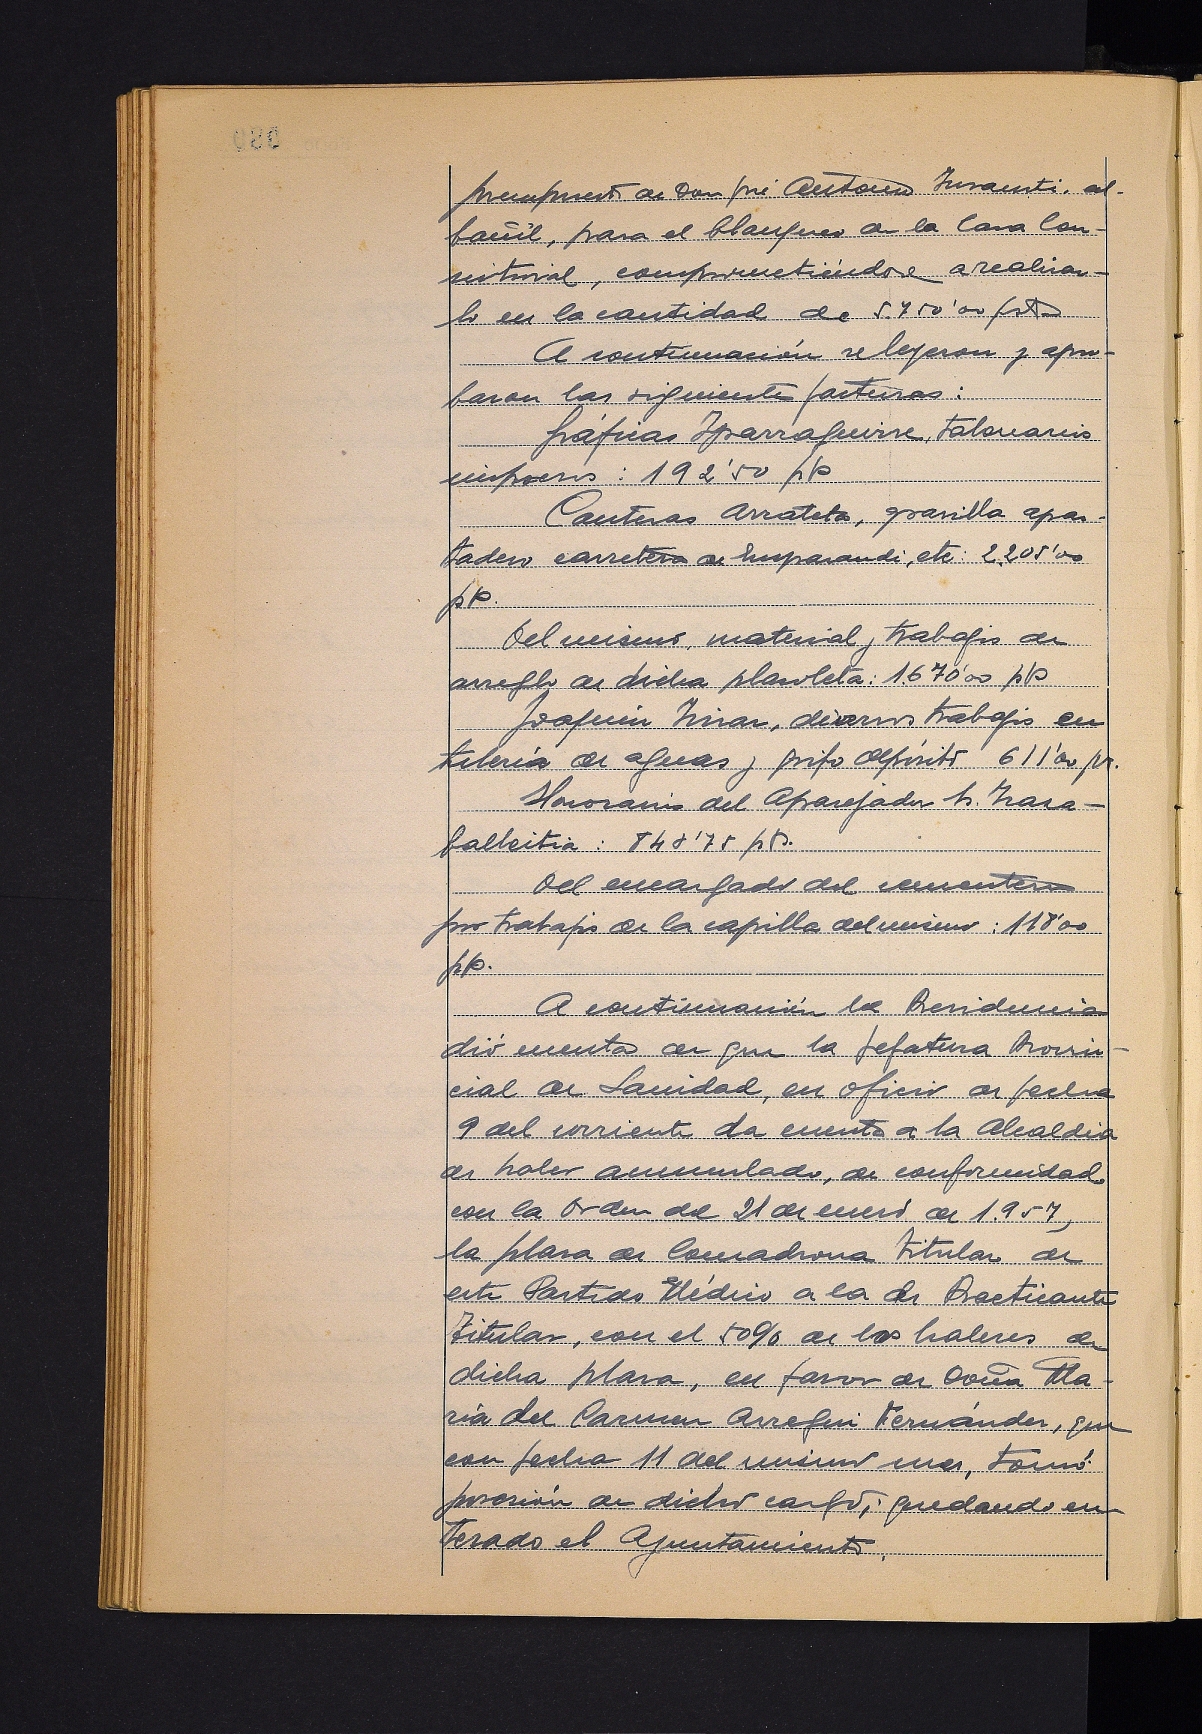 presupuesto de Don José Antonio Insausti, al-
bañil, para el blanqueo de la Casa Con-
sistorial, comprometiéndose a realizar-
lo en la cantidad de 5.750'00 pts
A continuación se leyeron y apro-
baron las siguientes facturas:
Gráficas Yparraguirre, talonarios
impresos: 192'50 pts
Canteras Arrateta, gravilla apar-
tadero carretera de, etc: 2.205'00
pts.
Del mismo, material y trabajos de
arreglo de dicha plazoleta: 1.670'00 pts
Joaquín, diversos trabajos en
tubería de aguas y grifo depósito 611'00 pts.
Honorarios del Aparejador Sr.
: 848'75 pts.
Del encargado del cementerio
por trabajos de la capilla del mismo: 118'00
pts.
A continuación la Presidencia
dió cuenta de que la Jefatura Provin-
cial de Sanidad, en oficio de fecha
9 del corriente da cuenta a la Alcaldía
de haber acumulado, de conformidad
con la Orden de 21 de enero de 1.957,
la plaza de Comadrona Titular de
este Partido Médico a la de Practicante
Titular, con el 50% de los haberes de
dicha plaza, en favor de Doña Ma-
ría del Carmen Arregui Fernández, que
con fecha 11 del mismo mes, tomó
posesión de dicho cargo; quedando en-
terado el Ayuntamiento.